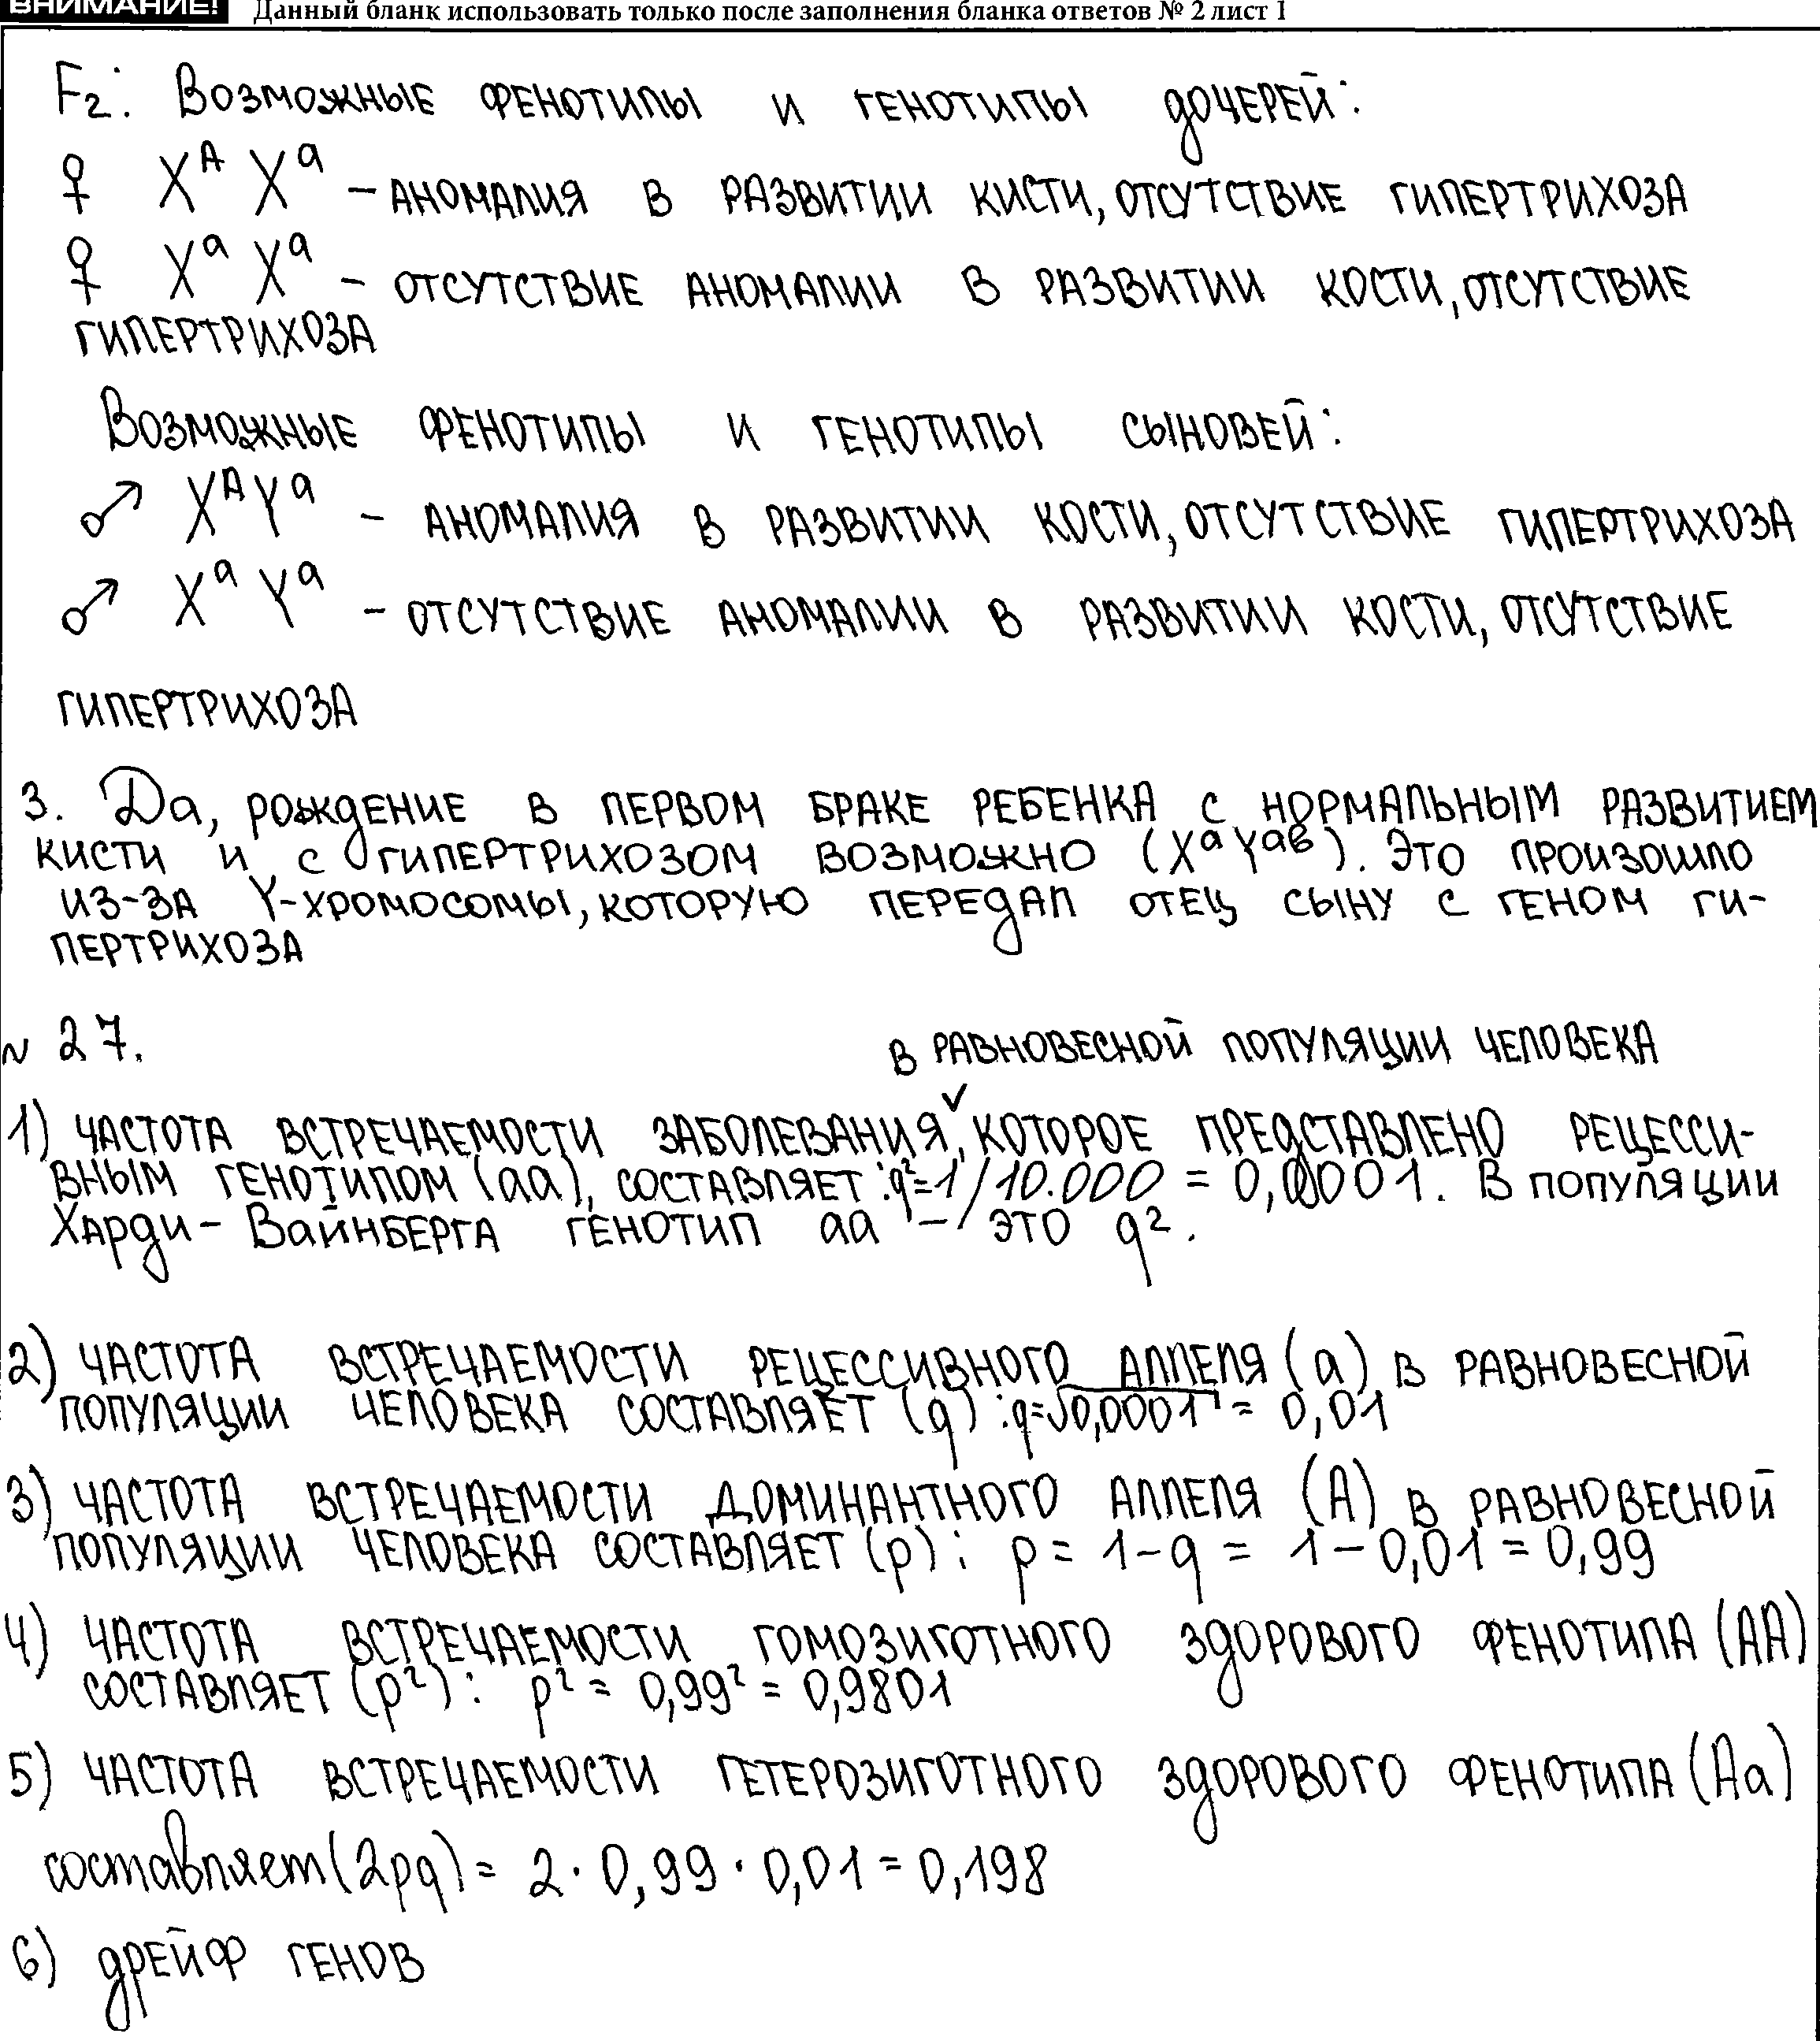 ВНИМАНИЕ! Данный бланк использовать только после заполнения бланка ответов № 2 лист 1
F₂: Возможные фенотипы и генотипы дочерей:
♀ Xᴬ Xᵃ – аномалия в развитии кисти, отсутствие гипертрихоза
♀ Xᵃ Xᵃ – отсутствие аномалии в развитии кости, отсутствие
гипертрихоза
Возможные фенотипы и генотипы сыновей:
♂ XᴬYᵃ – аномалия в развитии кости, отсутствие гипертрихоза
♂ Xᵃ Yᵃ – отсутствие аномалии в развитии кости, отсутствие
гипертрихоза
3. Да, рождение в первом браке ребенка с нормальным развитием
кисти и с гипертрихозом возможно (XᵃYᵃᵇ). Это произошло
из-за Y-хромосомы, которую передал отец сыну с геном ги-
пертрихоза
№ 27.
в равновесной популяции человека
1) частота встречаемости заболевания ✓, которое представлено рецесси-
вным генотипом (аа), составляет: q²=1/10.000 = 0,0001. В популяции
Харди-Вайнберга генотип аа – это q².
2) частота встречаемости рецессивного аллеля (а) в равновесной
популяции человека составляет (q): q=√0,0001 = 0,01
3) частота встречаемости доминантного аллеля (А) в равновесной
популяции человека составляет (p): p = 1-q = 1-0,01 = 0,99
4) частота встречаемости гомозиготного здорового фенотипа (АА)
составляет (p²): p² = 0,99² = 0,9801
5) частота встречаемости гетерозиготного здорового фенотипа (Аа)
составляет (2pq) = 2 · 0,99 · 0,01 = 0,198
6) дрейф генов